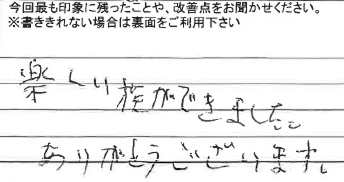 今回最も印象に残ったことや、改善点をお聞かせください。
※書ききれない場合は裏面をご利用下さい
楽しい旅ができました。
ありがとうございます。